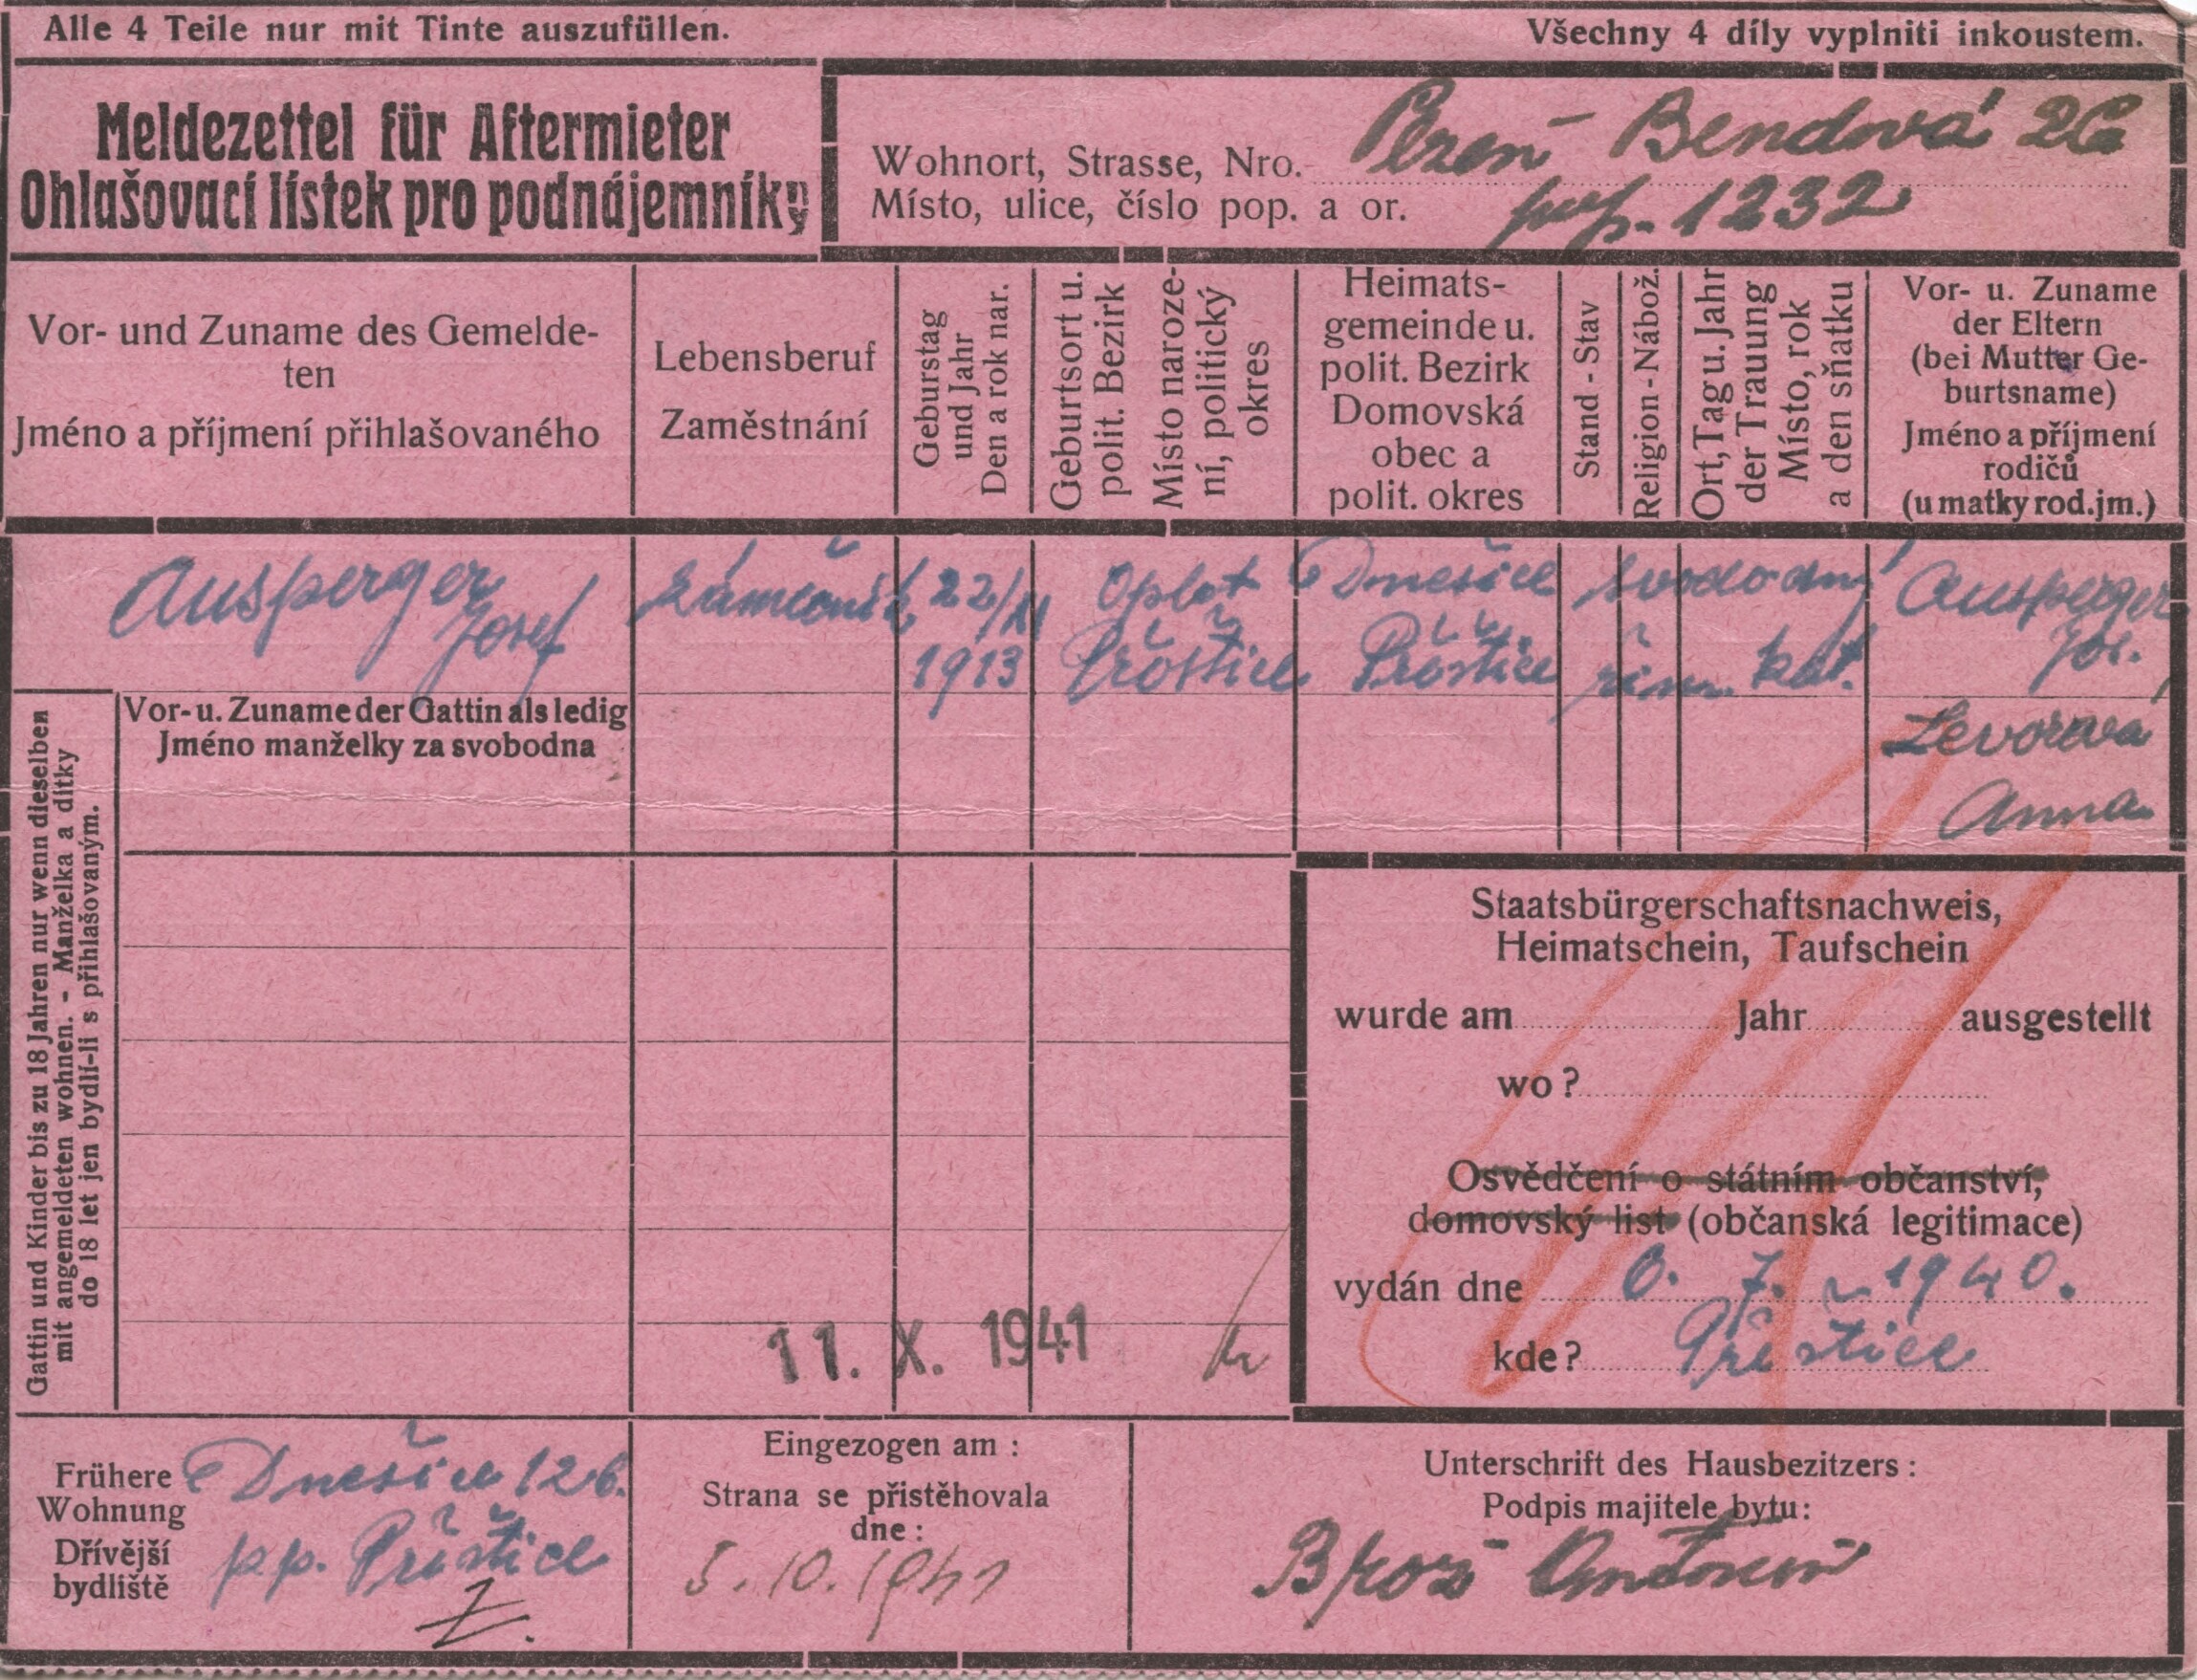 Alle 4 Teile nur mit Tinte auszufüllen.
Všechny 4 díly vyplniti inkoustem.
Meldezettel für Aftermieter
Ohlašovací lístek pro podnájemníky
Wohnort, Strasse, Nro.
Místo, ulice, číslo pop. a or.
Plzeň Bendová
pop. 1232
Vor- und Zuname des Gemelde-
ten
Jméno a příjmení přihlašovaného
Lebensberuf
Zaměstnání
Geburstag
und Jahr
Den a rok nar.
Geburtsort u.
polit. Bezirk
Místo naroze-
ní, politický
okres
Heimats-
gemeinde u.
polit. Bezirk
Domovská
obec a
polit. okres
Stand - Stav
Religion - Nábož.
Ort, Tag u. Jahr
der Trauung
Místo, rok
a den sňatku
Vor- u. Zuname
der Eltern
(bei Mutter Ge-
burtsname)
Jméno a příjmení
rodičů
(u matky rod. jm.)
Ausperger
Josef
zámečník
22/11
1913
Oplot
Přeštice
Dnešice
Přeštice
svobodný
řím. kat.
Ausperger
Jos.
Levorová
Anna
Vor- u. Zuname der Gattin als ledig
Jméno manželky za svobodna
Gattin und Kinder bis zu 18 Jahren nur wenn dieselben
mit angemeldeten wohnen. - Manželka a dítky
do 18 let jen bydlí-li s přihlašovaným.
11. X. 1941
Staatsbürgerschaftsnachweis,
Heimatschein, Taufschein
wurde am Jahr ausgestellt
wo?
Osvědčení o státním občanství,
domovský list (občanská legitimace)
vydán dne 6. 7. 1940.
kde? Přeštice
Frühere
Wohnung
Dřívější
bydliště
Dnešice 126.
pp. Přeštice
Eingezogen am :
Strana se přistěhovala
dne :
5. 10. 1941
Unterschrift des Hausbezitzers :
Podpis majitele bytu:
Brož Antonín